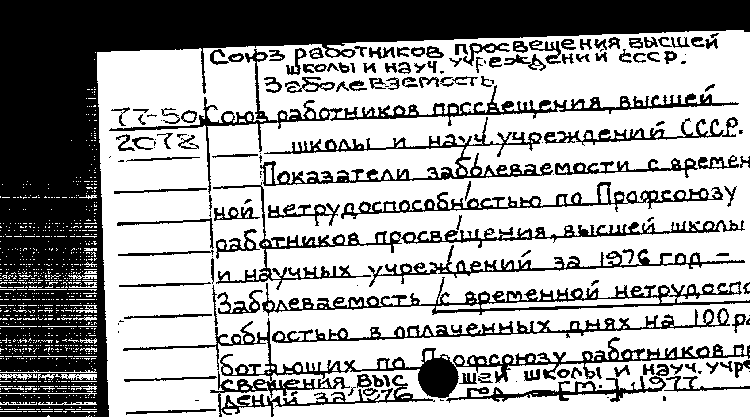 Союз работников просвещения, высшей
школы и науч. учреждений СССР.
Заболеваемость
77-50 Союз работников просвещения, высшей
2078 школы и науч. учреждений СССР.
Показатели заболеваемости с времен
ной нетрудоспособностью по Профсоюзу
работников просвещения, высшей школы
и научных учреждений за 1976 год –
Заболеваемость с временной нетрудоспо
собностью в оплаченных днях на 100 ра
ботающих по Профсоюзу работников п
свещения, выс шей школы и науч. учре
дений за 1976 год. – [М.], 1977.